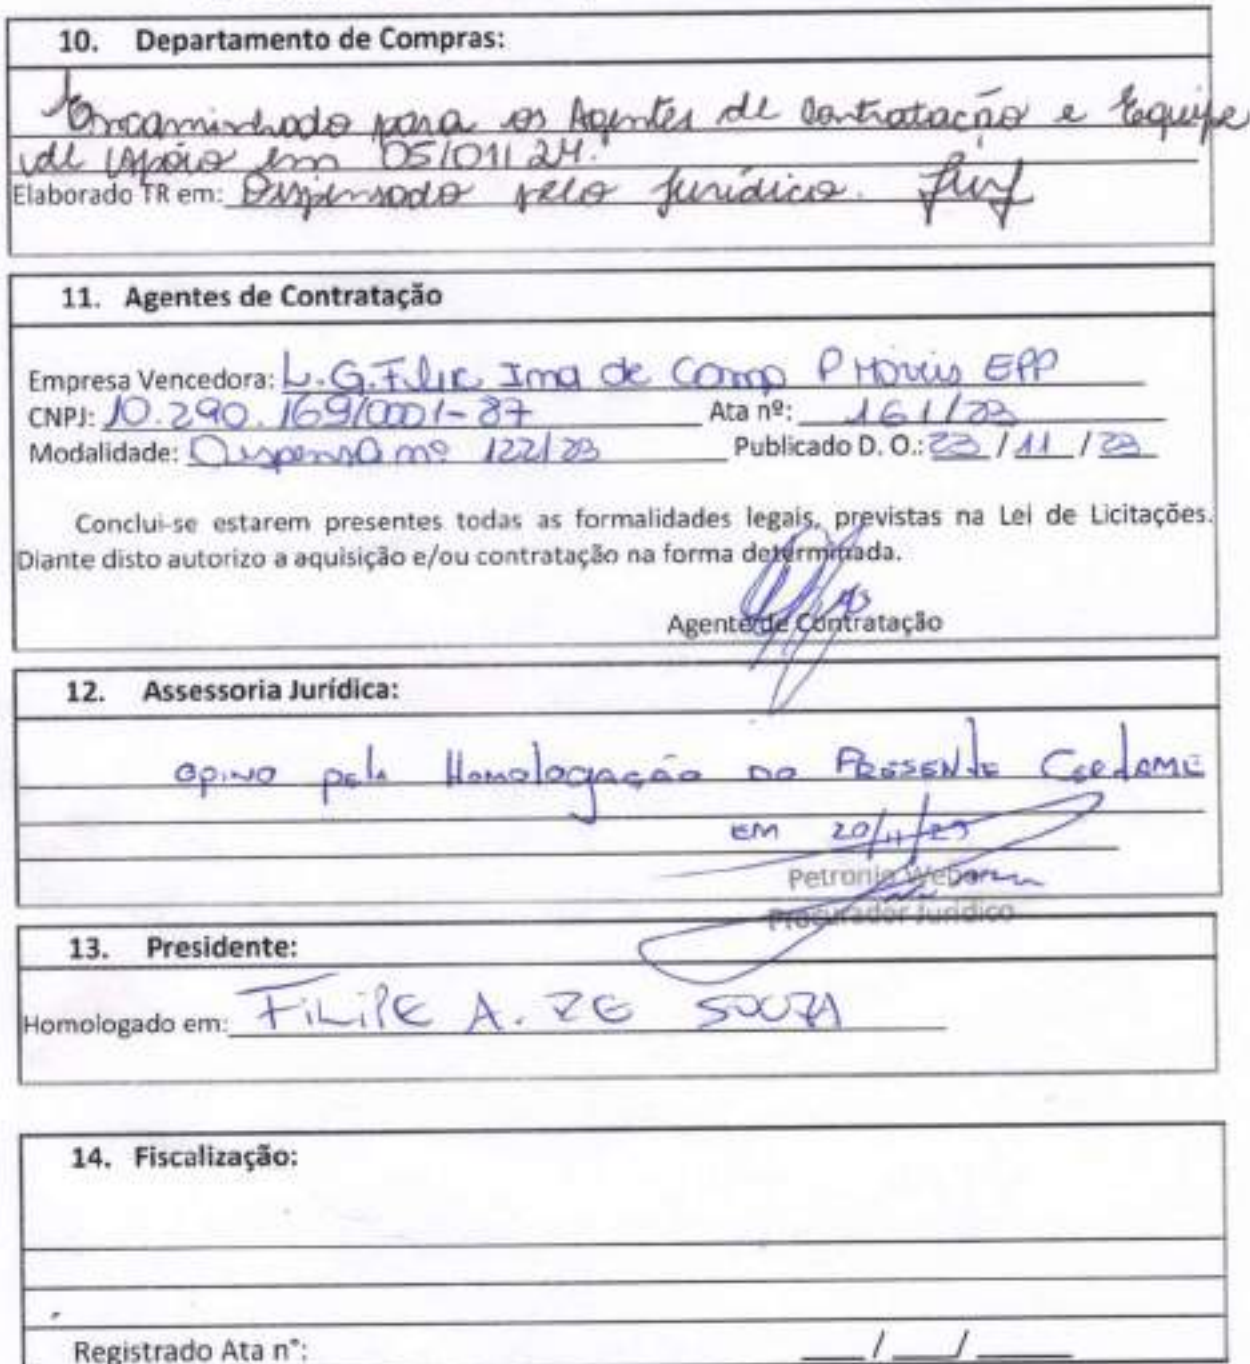 10. Departamento de Compras:
Encaminhado para os Agentes de Contratação e Equipe
de Apoio em 05/01/24.
Elaborado TR em: Dispensado pelo Jurídico.
11. Agentes de Contratação
Empresa Vencedora: L. G. Ind de Comp P Móveis EPP
CNPJ: 10.290.169/0001-87 Ata nº: 161/23
Modalidade: Dispensa nº 122/23 Publicado D. O.: 23/11/23
Conclui-se estarem presentes todas as formalidades legais, previstas na Lei de Licitações.
Diante disto autorizo a aquisição e/ou contratação na forma determinada.
Agente de Contratação
12. Assessoria Jurídica:
opino pela Homologação do PRESENTE CERTAME
EM 20/11/23
Petronio Weber
Procurador Jurídico
13. Presidente:
Homologado em: FILIPE A. DE SOUZA
14. Fiscalização:
Registrado Ata n°: ___/___/___